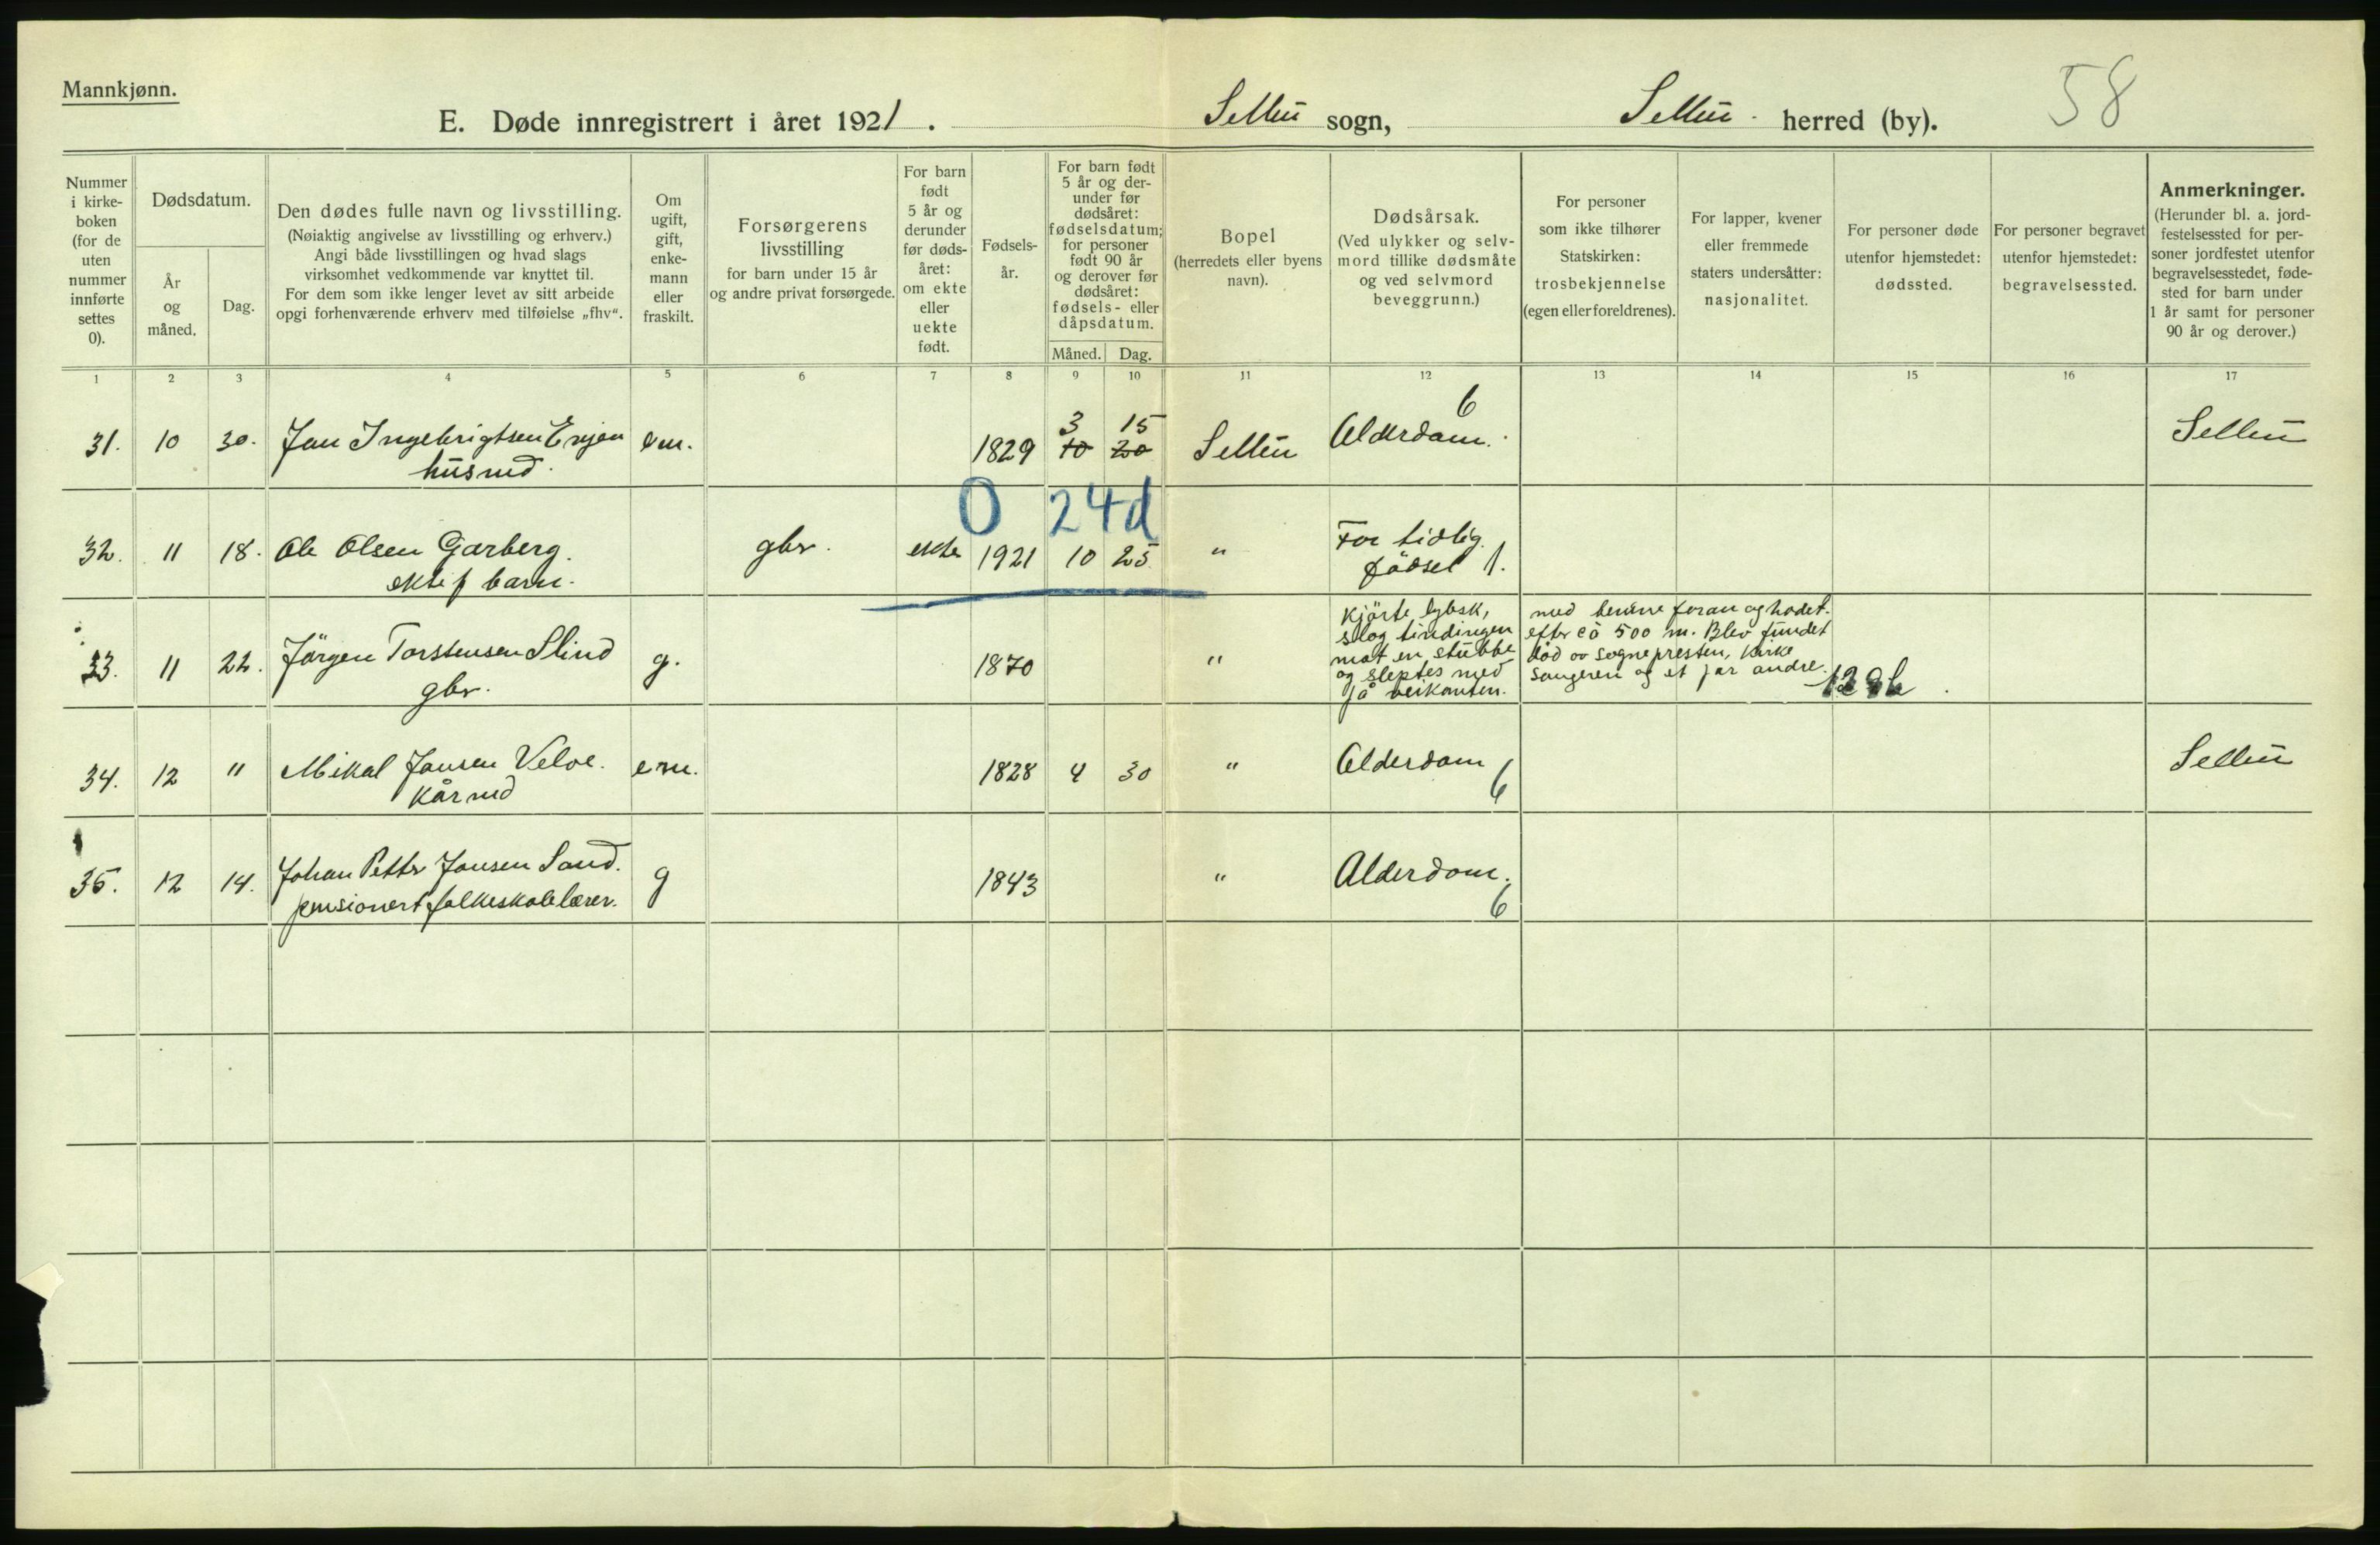 Mannkjønn.
E. Døde innregistrert i året 1921. Selbu sogn, Selbu herred (by). 58
Nummer i kirke- boken (for de uten nummer innførte settes 0).
Dødsdatum.
År og måned.
Dag.
Den dødes fulle navn og livsstilling.
(Nøiaktig angivelse av livsstilling og erhverv.)
Angi både livsstillingen og hvad slags
virksomhet vedkommende var knyttet til.
For dem som ikke lenger levet av sitt arbeide
opgi forhenværende erhverv med tilføielse „fhv“.
Om ugift, gift, enke- mann eller fraskilt.
Forsørgerens
livsstilling
for barn under 15 år
og andre privat forsørgede.
For barn født 5 år og derunder før døds- året: om ekte eller uekte født.
Fødsels- år.
For barn født 5 år og der- under før dødsåret: fødselsdatum; for personer født 90 år og derover før dødsåret: fødsels- eller dåpsdatum.
Måned. Dag.
Bopel
(herredets eller byens
navn).
Dødsårsak.
(Ved ulykker og selv-
mord tillike dødsmåte
og ved selvmord
beveggrunn.)
For personer
som ikke tilhører
Statskirken:
trosbekjennelse
(egen eller foreldrenes).
For lapper, kvener
eller fremmede
staters undersåtter:
nasjonalitet.
For personer døde
utenfor hjemstedet:
dødssted.
For personer begravet
utenfor hjemstedet:
begravelsessted.
Anmerkninger.
(Herunder bl. a. jord-
festelsessted for per-
soner jordfestet utenfor
begravelsesstedet, føde-
sted for barn under
1 år samt for personer
90 år og derover.)
1 2 3 4 5 6 7 8 9 10 11 12 13 14 15 16 17
3 15 6
31. 10 30. Jan Ingebrigtsen em. 1829 10 20 Selbu Alderdom. Selbu
husmd.
0 24d
32. 11 18. Ole Olsen Garberg. gbr. ekte 1921 10 25 " For tidlig
ektef barn. födsel 1.
33. 11 22. Jörgen Torstensen Slind g. 1870 "
gbr.
Kjörte lybsk,
slog tindingen
mot en stubbe
og sleptes med
på veikanten.
med benene foran og hodet.
efter ca 500 m. Blev fundet
död av sognepresten, kirke
sangeren og et par andre.
34. 12 " Mikal Jansen Velve. em. 1828 4 30 " Alderdom Selbu
Kårmd 6
35. 12 14. Johan Petter Jansen Sand. g 1843 " Alderdom.
pensionert folkeskolelærer. 6